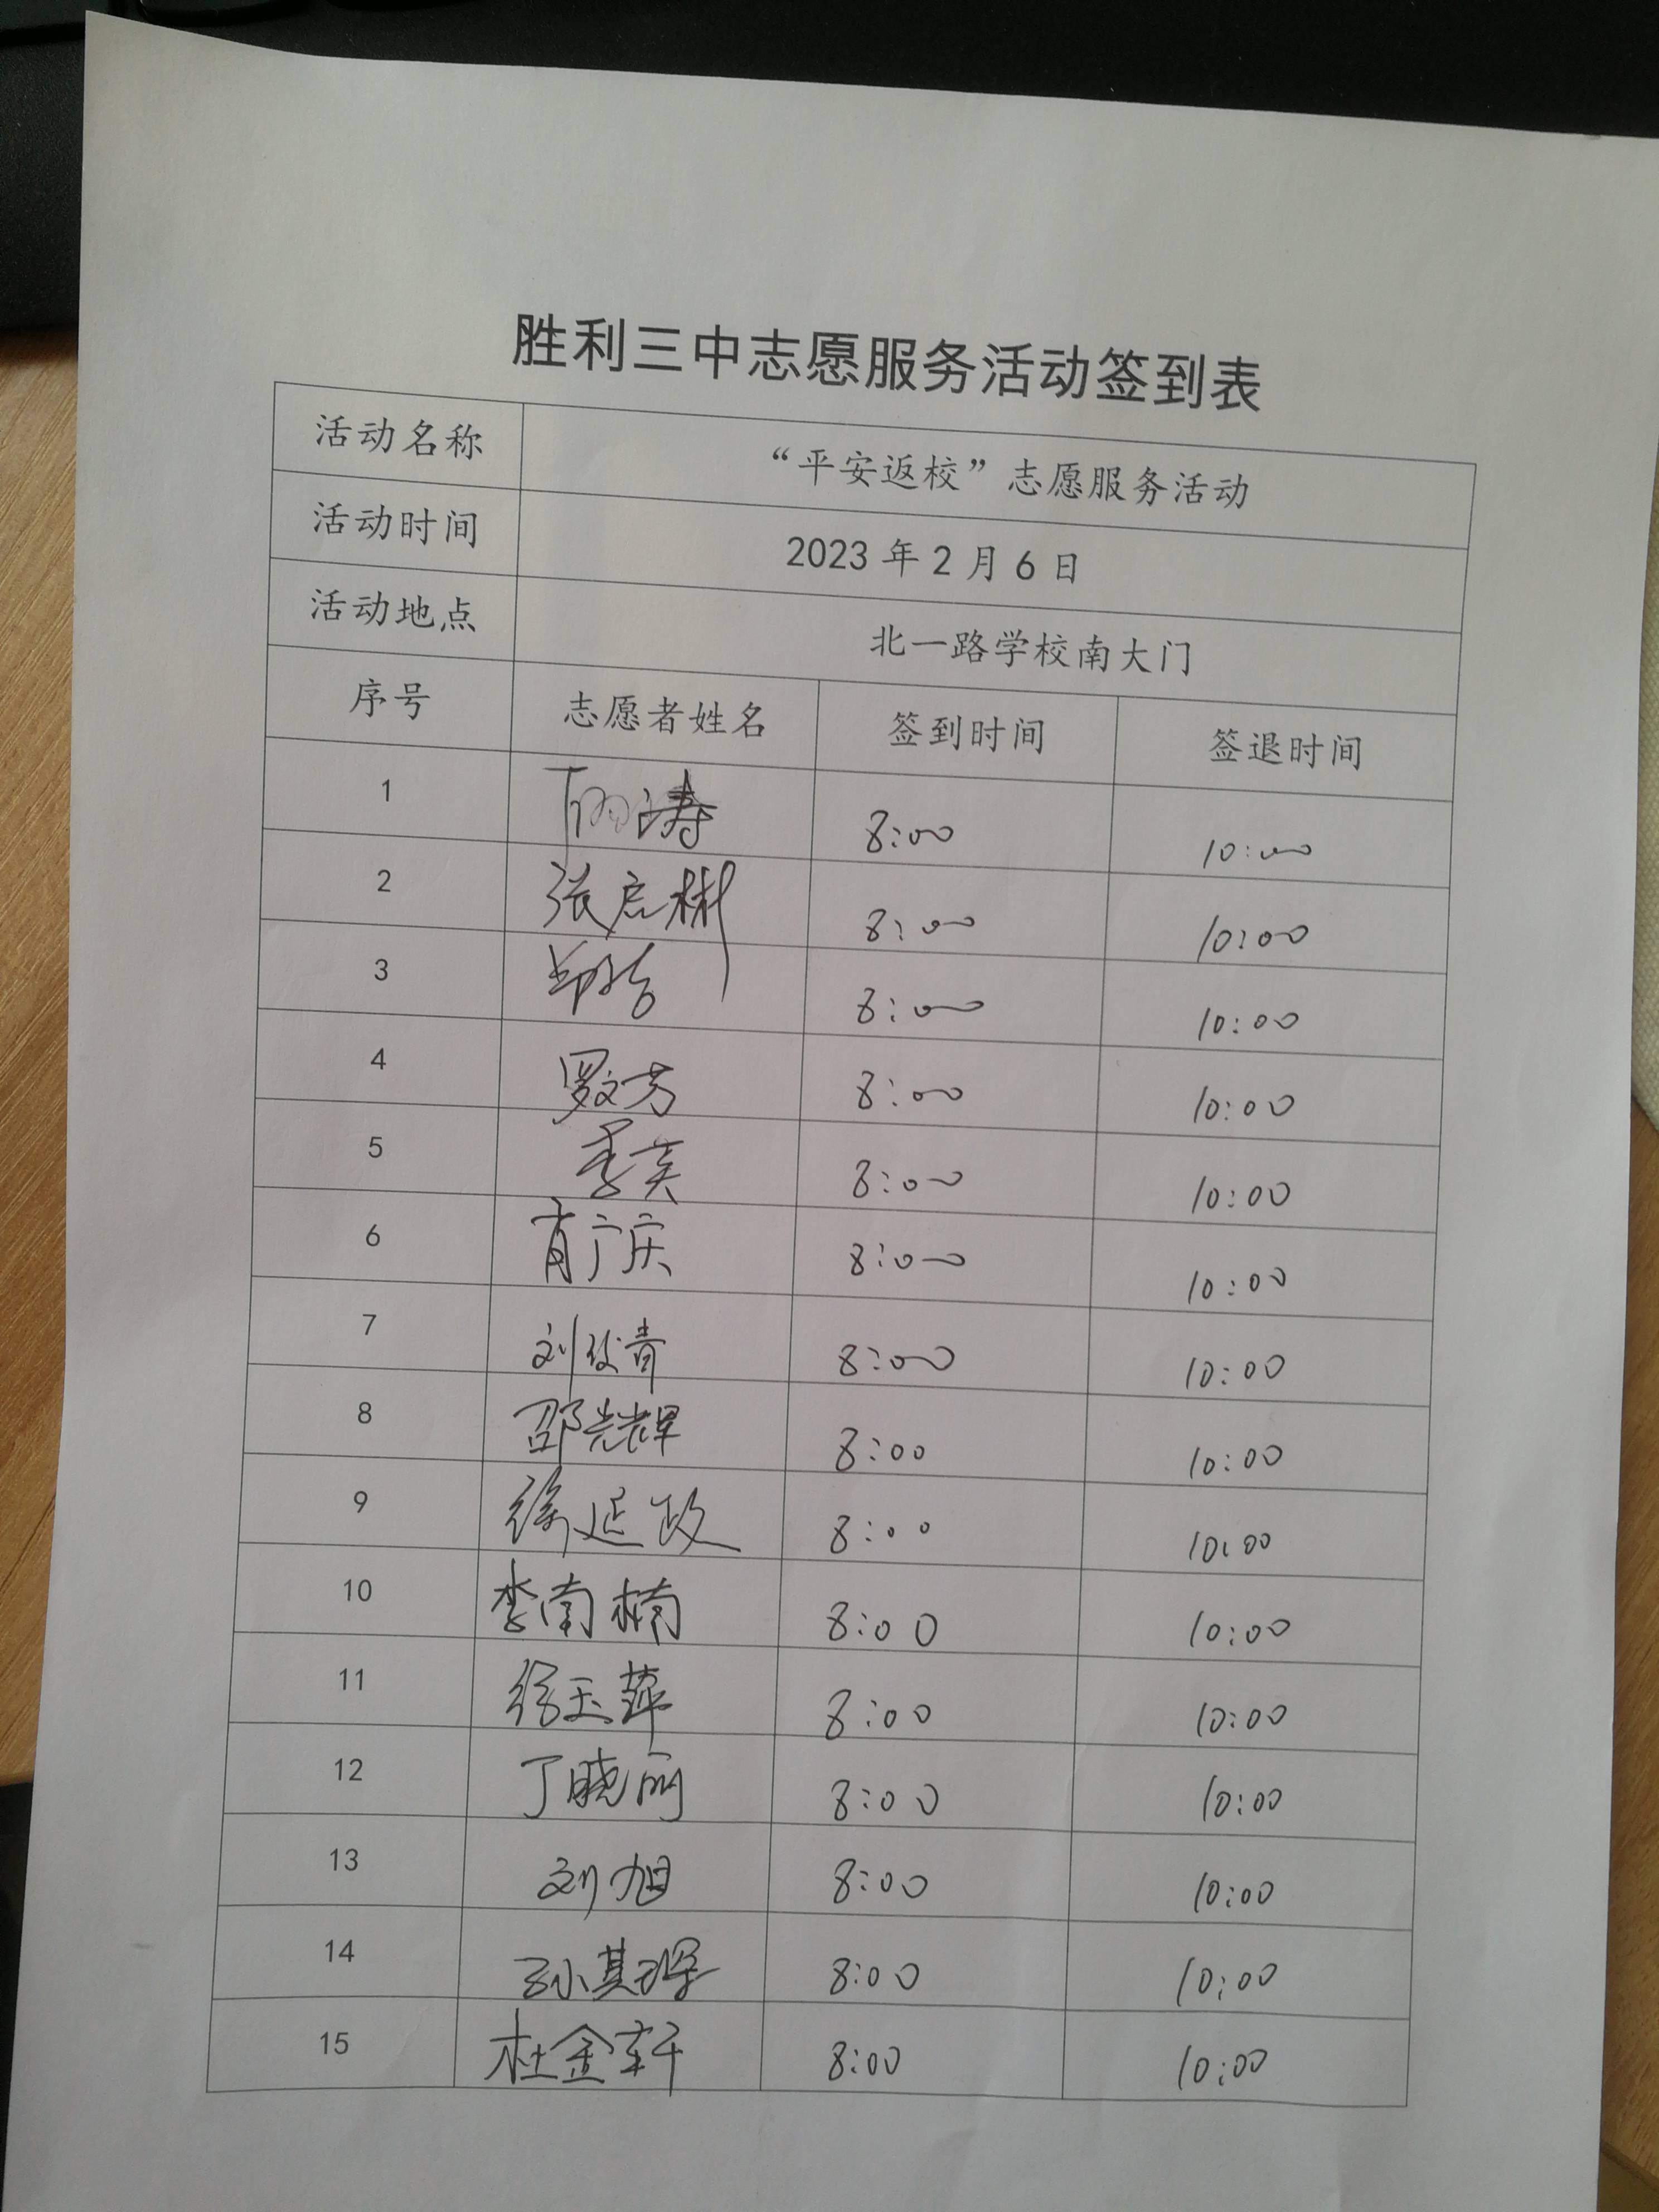 胜利三中志愿服务活动签到表
活动名称 “平安返校”志愿服务活动
活动时间 2023 年 2 月 6 日
活动地点 北一路学校南大门
序号 志愿者姓名 签到时间 签退时间
1 涛 8:00 10:00
2 张启彬 8:00 10:00
3 8:00 10:00
4 罗文芳 8:00 10:00
5 李英 8:00 10:00
6 肖广庆 8:00 10:00
7 刘俊青 8:00 10:00
8 邵光辉 8:00 10:00
9 徐延政 8:00 10:00
10 李南楠 8:00 10:00
11 徐玉萍 8:00 10:00
12 丁晓丽 8:00 10:00
13 刘旭 8:00 10:00
14 孙其珲 8:00 10:00
15 杜金轩 8:00 10:00